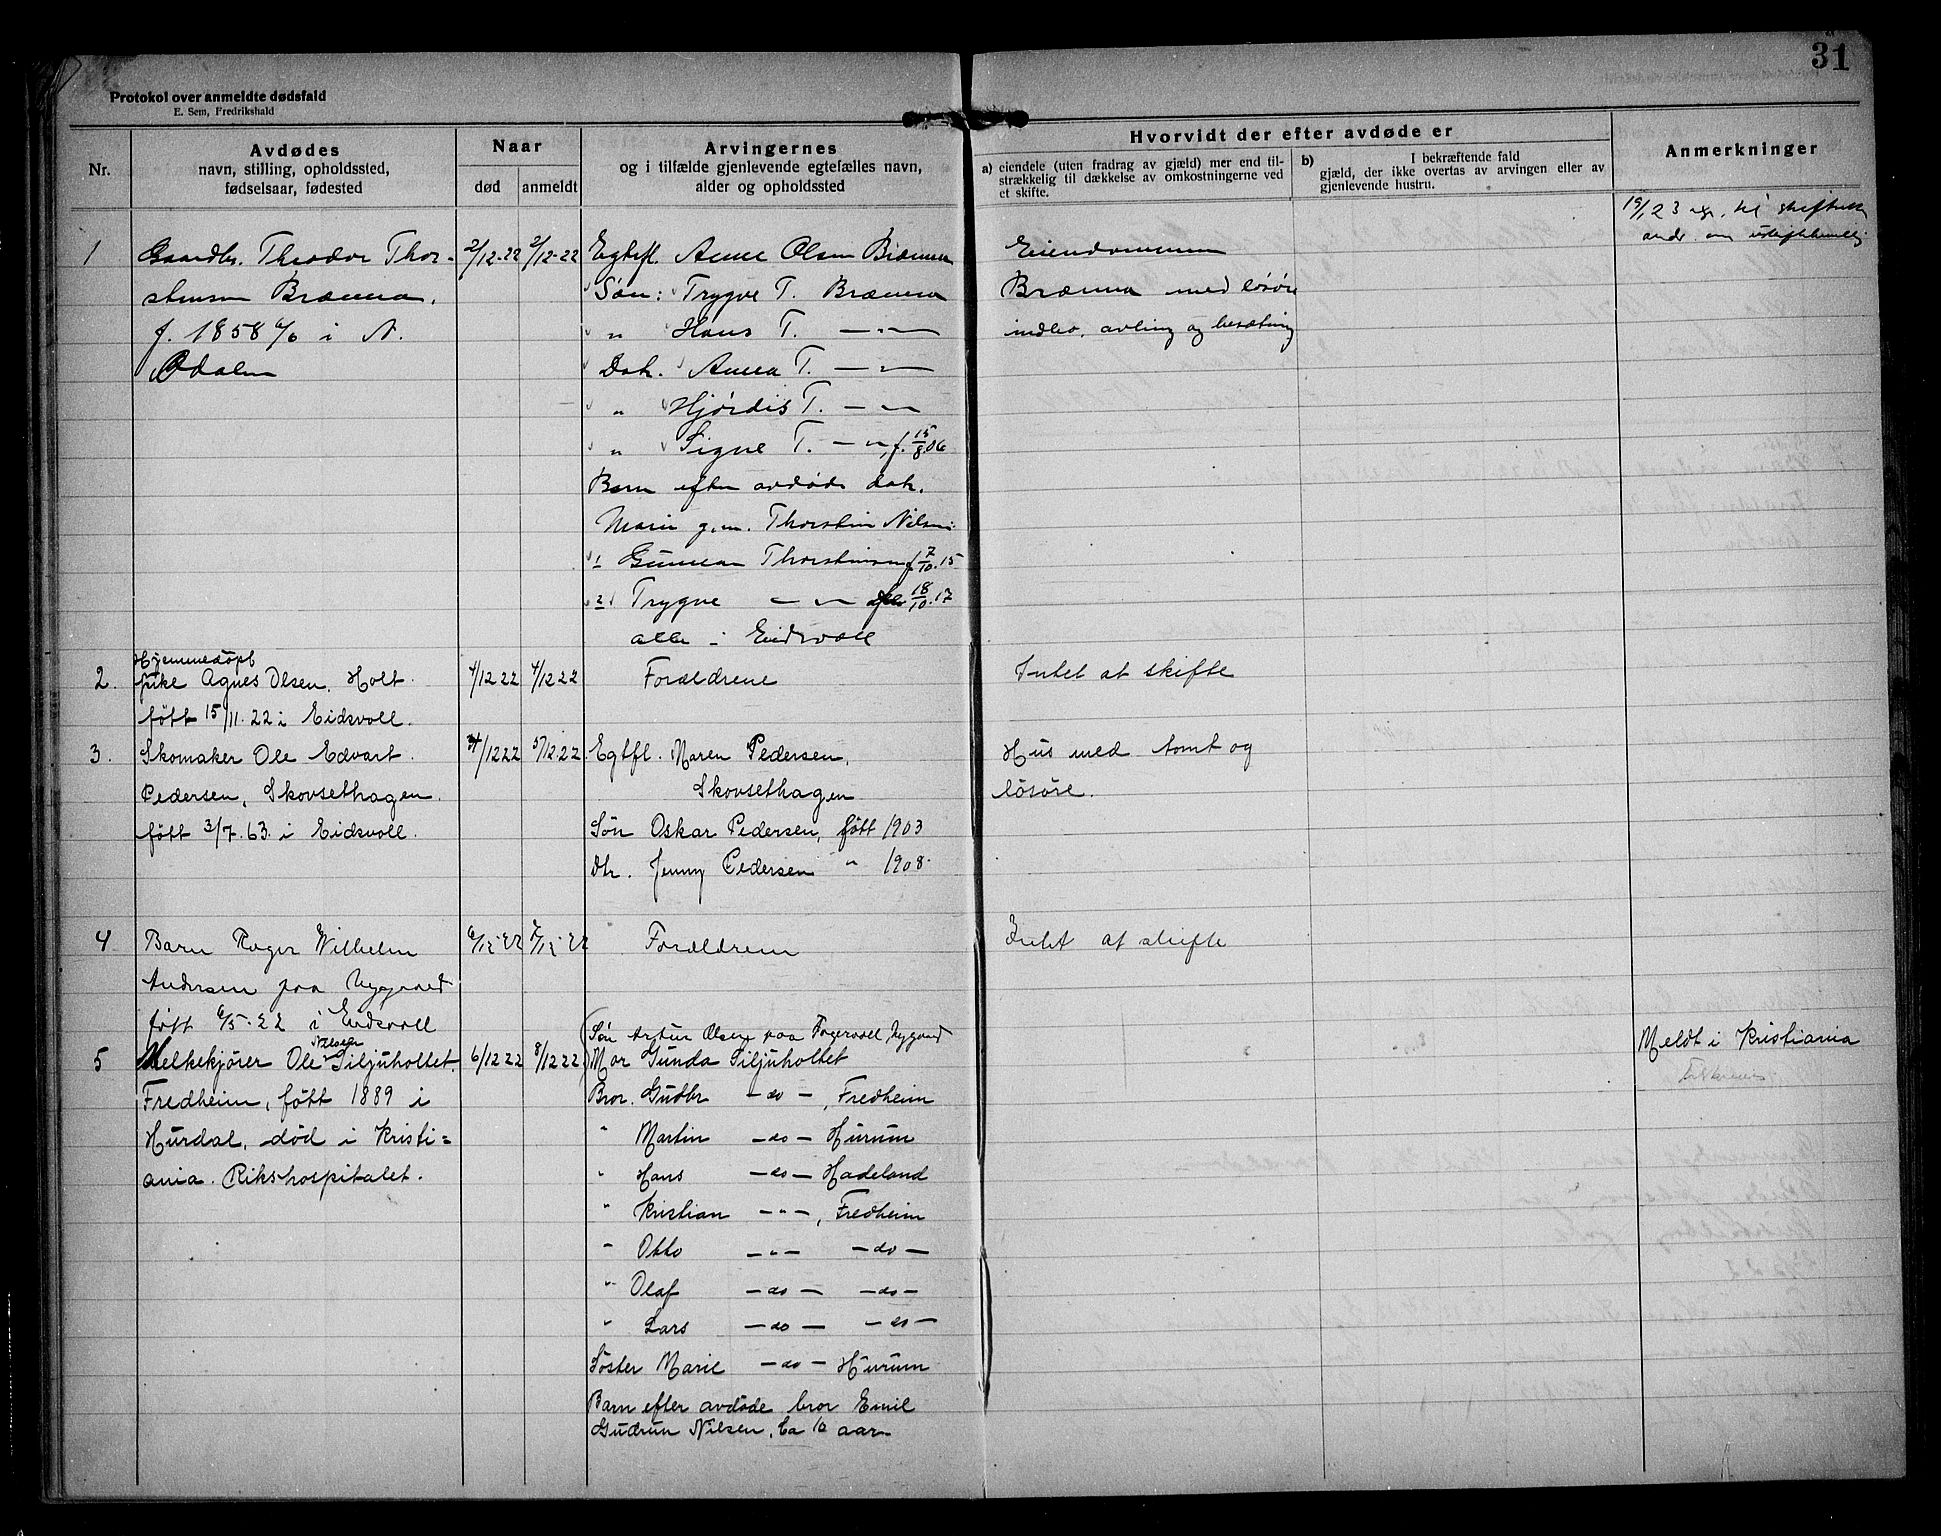 31
Protokol over anmeldte dødsfald
E. Sem, Fredrikshald
Nr.
Avdødes
navn, stilling, opholdssted,
fødselsaar, fødested
Naar
død
anmeldt
Arvingernes
og i tilfælde gjenlevende egtefælles navn,
alder og opholdssted
Hvorvidt der efter avdøde er
a) eiendele (uten fradrag av gjæld) mer end til-
strækkelig til dækkelse av omkostningerne ved
et skifte.
b) I bekræftende fald
gjæld, der ikke overtas av arvingen eller av
gjenlevende hustru.
Anmerkninger
1
Gaardbr. Theodor Thor-
stensen Brænna,
f. 1858 i N.
Odalen
2/12-22
2/12-22
Egtefl. Anne Olsen Brænna
Søn: Trygve T. Brænna
„ Hans T. — „ —
Dat. Anna T. — „ —
„ Hjørdis T. — „ —
„ Signe T. — „ —, f. 15/8.06
Barn efter avdøde dat.
Marie g.m. Thorstein Nilsen:
1 Gunnar Thorstensen f 7/10.15
2 Trygve — „ — 18/10.17
alle i Eidsvoll
Eiendommen
Brænna med løsøre
indbo, avling og besætning
19/1 23
2.
Hjemmedöpt
pike Agnes Olsen, Holt.
født 15/11.22 i Eidsvoll.
4/12 22
4/12 22
Forældrene
Intet at skifte
3.
Skomaker Ole Edvart.
Pedersen, Skovsethagen.
født 3/7.63. i Eidsvoll.
4/12 22
5/12.22.
Egtfl. Maren Pedersen,
Skovsethagen
Søn Oskar Pedersen, født 1903
Dtr. Jenny Pedersen " 1908.
Hus med tomt og
løsøre.
4
Barn Roger Wilhelm
Andersen paa Nygaard
født 6/5-22 i Eidsvoll
6/12-22
7/12-22
Forældrene
Intet at skifte
5
Melkekjører Ole Nilsen Siljuholtet.
Fredheim, født 1889 i
Hurdal, død i Kristi=
ania. Rikshospitalet.
6/12 22
8/12 22
Søn Artur Olsen paa Fagervoll, Nygaard
Mor Gunda Siljuholtet
Bror. Gudbr — do —, Fredheim
" Martin — do — Hurum
" Hans — do — Hadeland
" Kristian — " —, Fredheim
" Otto — " — — do —
" Olaf — do — — do —
" Lars — do — — do —
Søster Marie — do — Hurum
Barn efter avdøde bror Emil
Gudrun Nilsen, ca 10 aar
Meldt i Kristiania